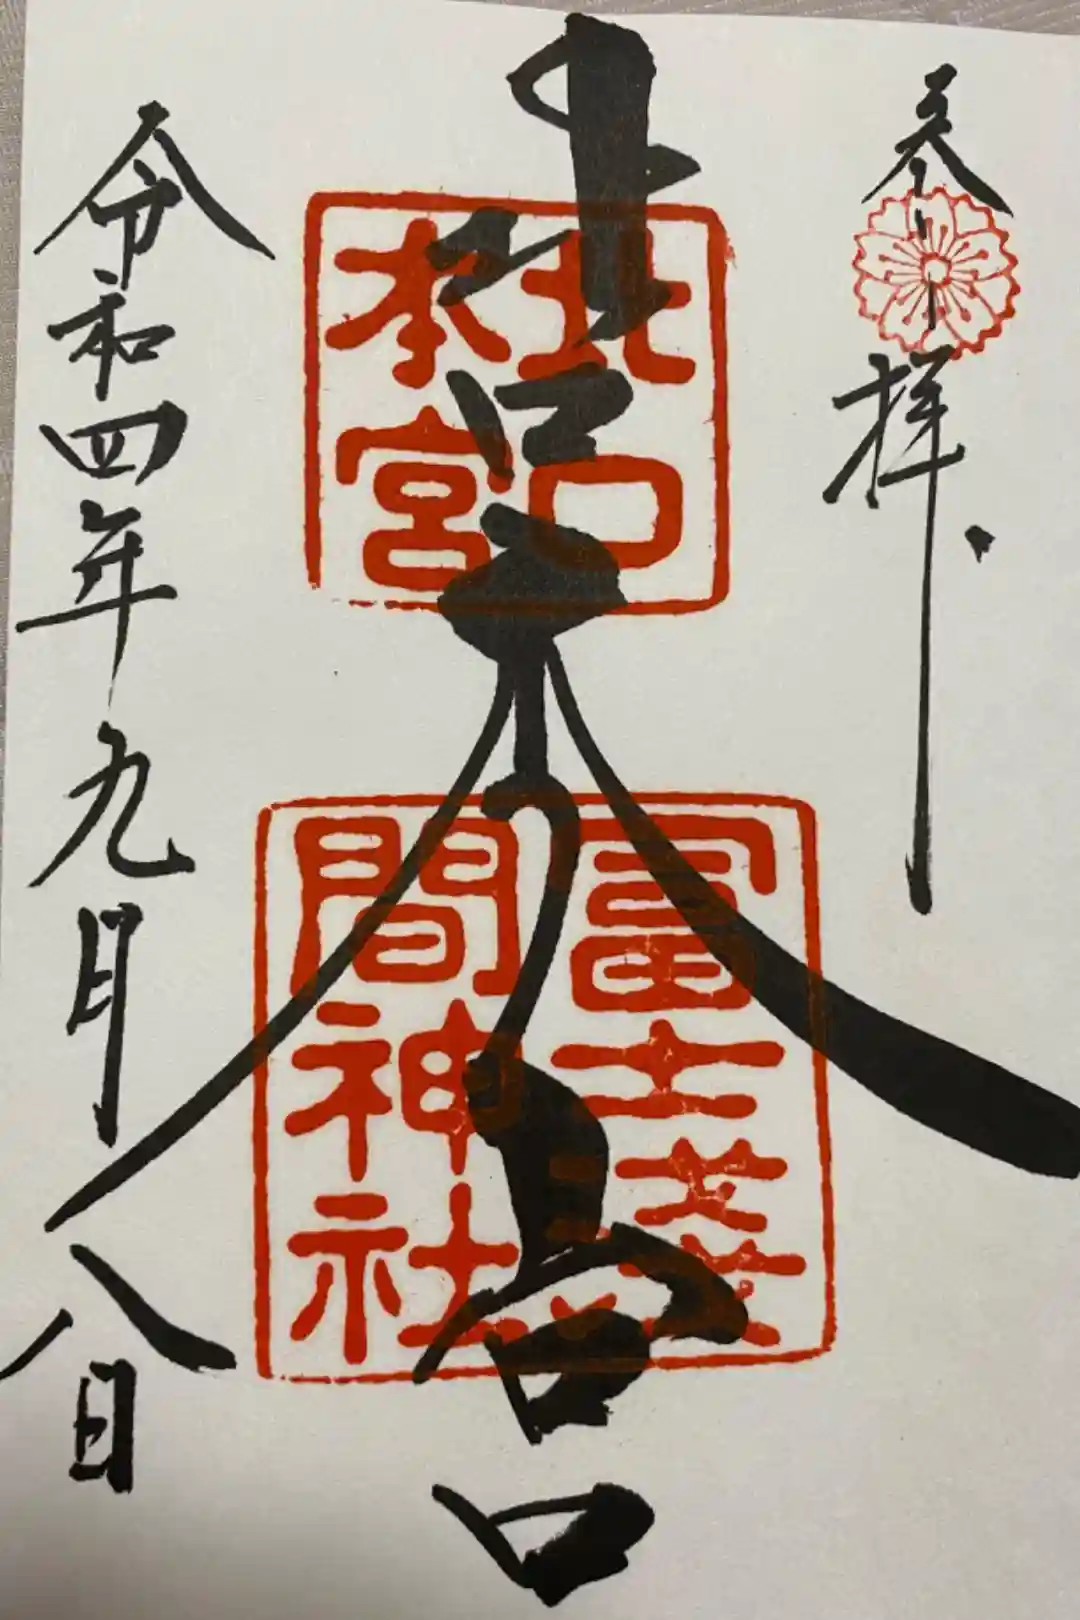 参拝
北口
本宮
冨士浅
間神社
北口本宮
令和四年九月八日